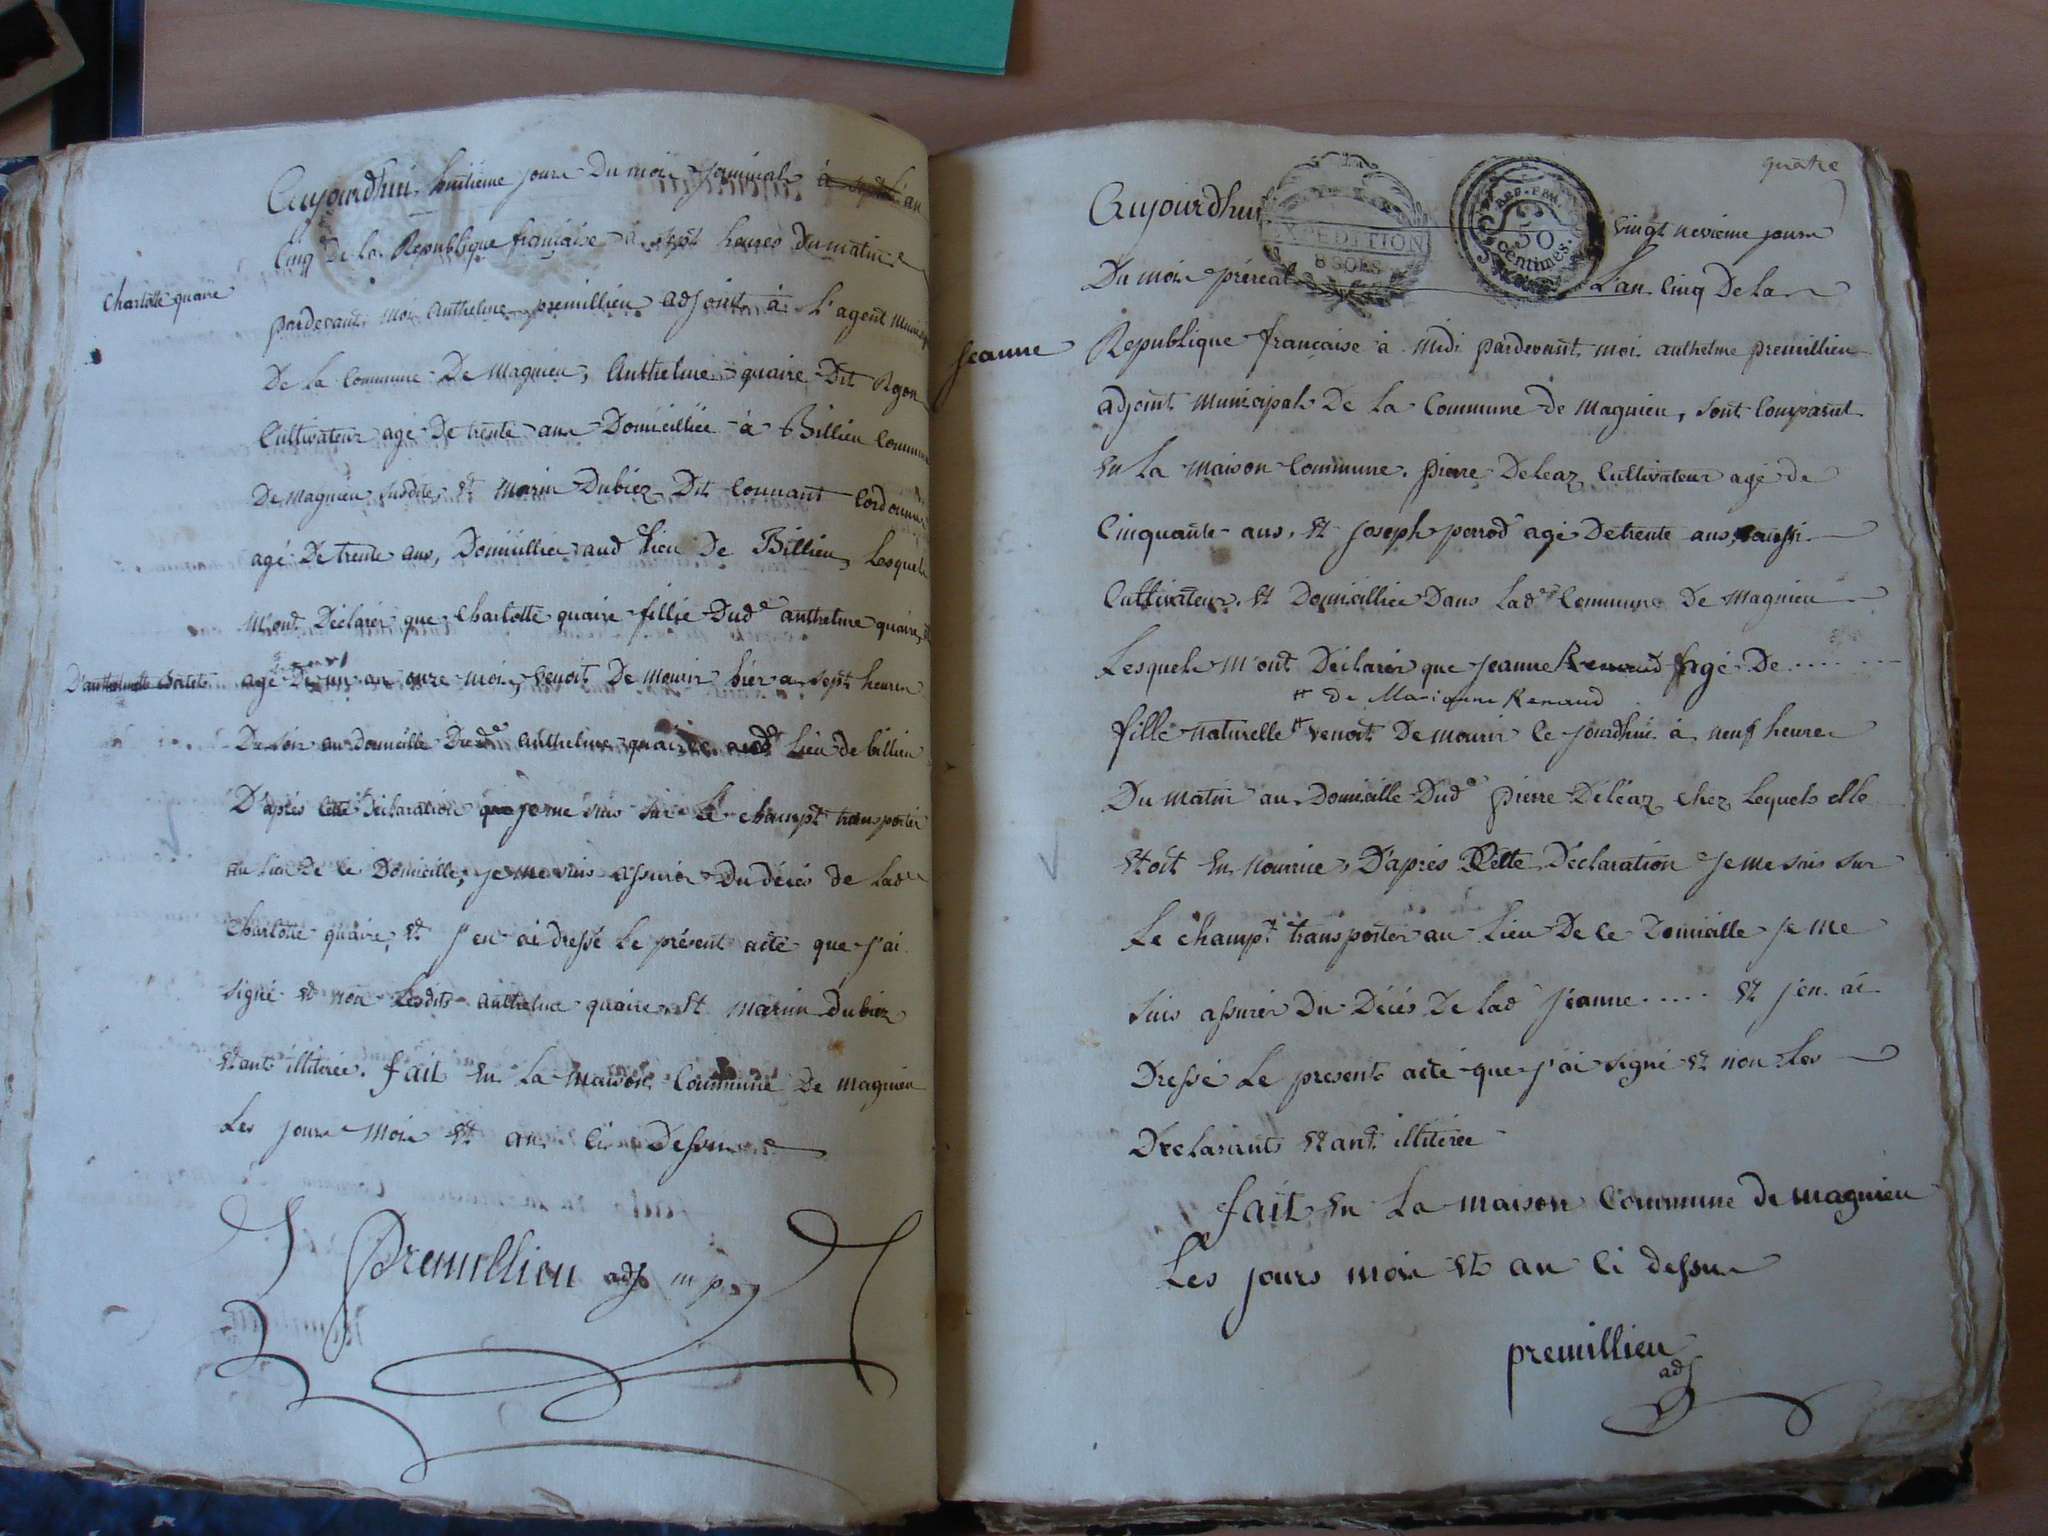 Aujourdhui huitieme jour Du mois germinal à sept L'an
Cinq De la Republique française à sept heures Du matin
Charlotte quaire
pardevant moi Anthelme premillieu adjoint à L'agent Munici
De La Commune De Magnieu, Anthelme quaire Dit
Cultivateur agé De trente ans Domicillié à Billieu Commune
De Magnieu susdite, et Marin Dubiez Dit Connant Cordonnier
agé De trente ans, Domicillié aud Lieu De Billieu, Lesquels
M'ont Déclarér que Charlotte quaire fillie Dud anthelme quaire,
D'anthelmette
agé De un an onze mois, venoit De mourir hiér a sept heures
Du soir au domicille Dud Anthelme quaire aud Lieu de billieu
D'après Cette Déclaration je me suis sur Le champt transportér
au Lieu De ce Domicille, je me suis assurér Du décés de Lad
Charlotte quaire, et j'en ai dressé Le présent acte que j'ai
signé et non Lesdits anthelme quaire et marin dubiez
etant illiterée. fait en La maison Commune De magnieu
Les jour Mois et an Ci Dessus
Premillieu adj m p
quatre
Aujourdhui vingt nevieme jour
EXPEDITION
8 SOLS
50
Centimes.
Du mois préreal L'an Cinq De La
Jeanne
Republique française à Midi pardevant moi anthelme premillieu
adjoint Municipal De La Commune de Magnieu, sont Comparut
en La Maison Commune, pierre Deleaz Cultivateur agé de
Cinquante ans, et joseph perrod agé De trente ans, aussi
Cultivateur, et Domicillié Dans Lad Commune De Magnieu
Lesquels M'ont Déclarér que jeanne Renaud agé De .......
et de Marianne Renaud
fille naturelle venoit De mourir ce jourdhui à neuf heures
Du matin au Domicille Dud pierre Déléaz chez Lequels elle
etoit en nourrice, D'aprés Cette Déclaration je me suis sur
Le champt transportér au Lieu De ce Domicille je me
suis assurér Du Décés De Lad jeanne ..... et j'en ai
Dressé Le present acte que j'ai signé et non Les
Declarants etant illiterée
fait en La maison Commune de magnieu
Les jours mois et an Ci dessus
premillieu
adj